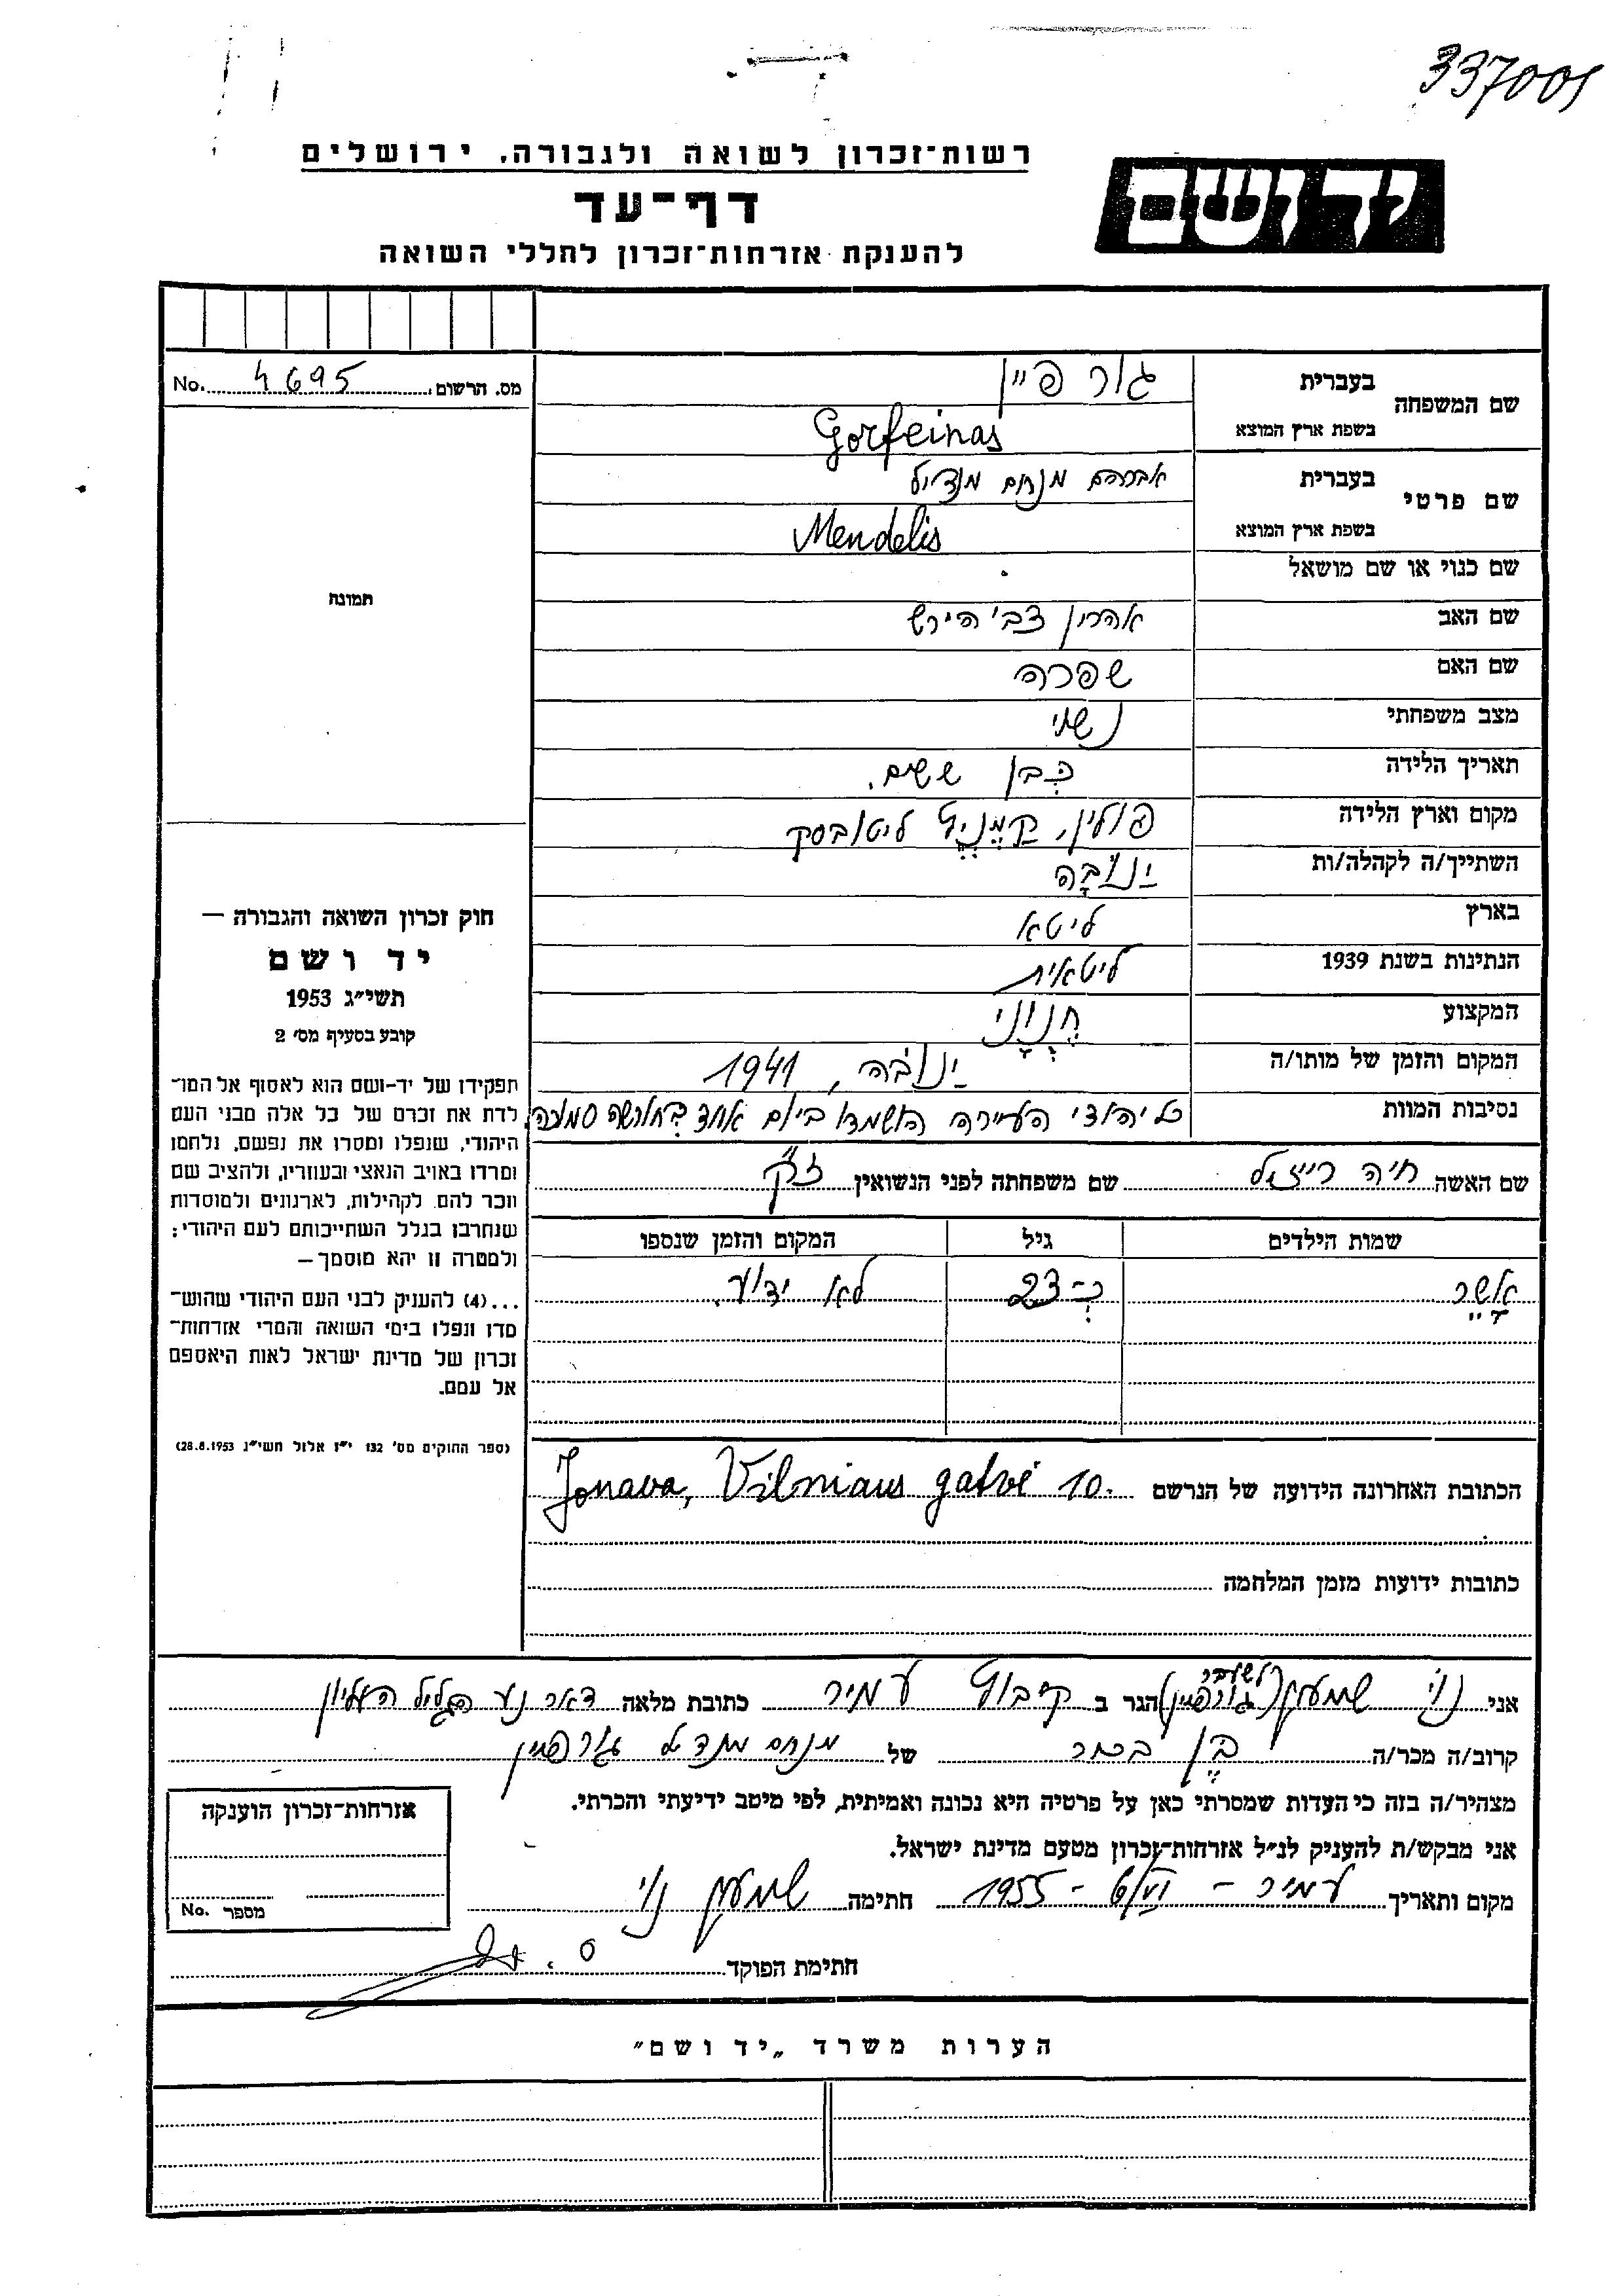 337001
רשות־זכרון לשואה ולגבורה, ירושלים
יד ושם
דף־עד
להענקת אזרחות־זכרון לחללי השואה
מס. הרשום No. 4695
שם המשפחה
בעברית גורפיין
בשפת ארץ המוצא Gorfeinas
שם פרטי
בעברית אברהם מנחם מנדיל
בשפת ארץ המוצא Mendelis
שם כנוי או שם מושאל
שם האב אהרון צבי הירש
שם האם שפרה
מצב משפחתי נשוי
תאריך הלידה כבן ששים.
מקום וארץ הלידה פולין, קמניץ ליטובסק
השתייך/ה לקהלה/ות ינובה
בארץ ליטא
הנתינות בשנת 1939 ליטאית
המקצוע חנוני
המקום והזמן של מותו/ה ינובה, 1941
נסיבות המוות כל יהודי העיירה הושמדו ביום אחד בחורשה סמוכה.
שם האשה חיה רייזיל שם משפחתה לפני הנשואין זק
שמות הילדים גיל המקום והזמן שנספו
אשר כ־23 לא ידוע.
הכתובת האחרונה הידועה של הנרשם Jonava, Vilniaus gatvė 10.
כתובות ידועות מזמן המלחמה
תמונה
חוק זכרון השואה והגבורה —
יד ושם
תשי״ג 1953
קובע בסעיף מס׳ 2
תפקידו של יד־ושם הוא לאסוף אל המו־
לדת את זכרם של כל אלה מבני העם
היהודי, שנפלו ומסרו את נפשם, נלחמו
ומרדו באויב הנאצי ובעוזריו, ולהציב שם
וזכר להם, לקהילות, לארגונים ולמוסדות
שנחרבו בגלל השתייכותם לעם היהודי;
ולמטרה זו יהא מוסמך —
...(4) להעניק לבני העם היהודי שהוש־
מדו ונפלו בימי השואה והמרי אזרחות־
זכרון של מדינת ישראל לאות היאספם
אל עמם.
(ספר החוקים מס׳ 132 י״ז אלול תשי״ג 28.8.1953)
אני נוי שמעון (לשעבר גורפיין) הגר ב קיבוץ עמיר כתובת מלאה דאר נע הגליל העליון
קרוב/ה מכר/ה בן בכור של מנחם מנדל גורפיין
מצהיר/ה בזה כי העדות שמסרתי כאן על פרטיה היא נכונה ואמיתית, לפי מיטב ידיעתי והכרתי.
אני מבקש/ת להעניק לנ״ל אזרחות־זכרון מטעם מדינת ישראל.
מקום ותאריך עמיר – – 1955 חתימה שמעון נוי
חתימת הפוקד
אזרחות־זכרון הוענקה
מספר No.
הערות משרד „יד ושם״